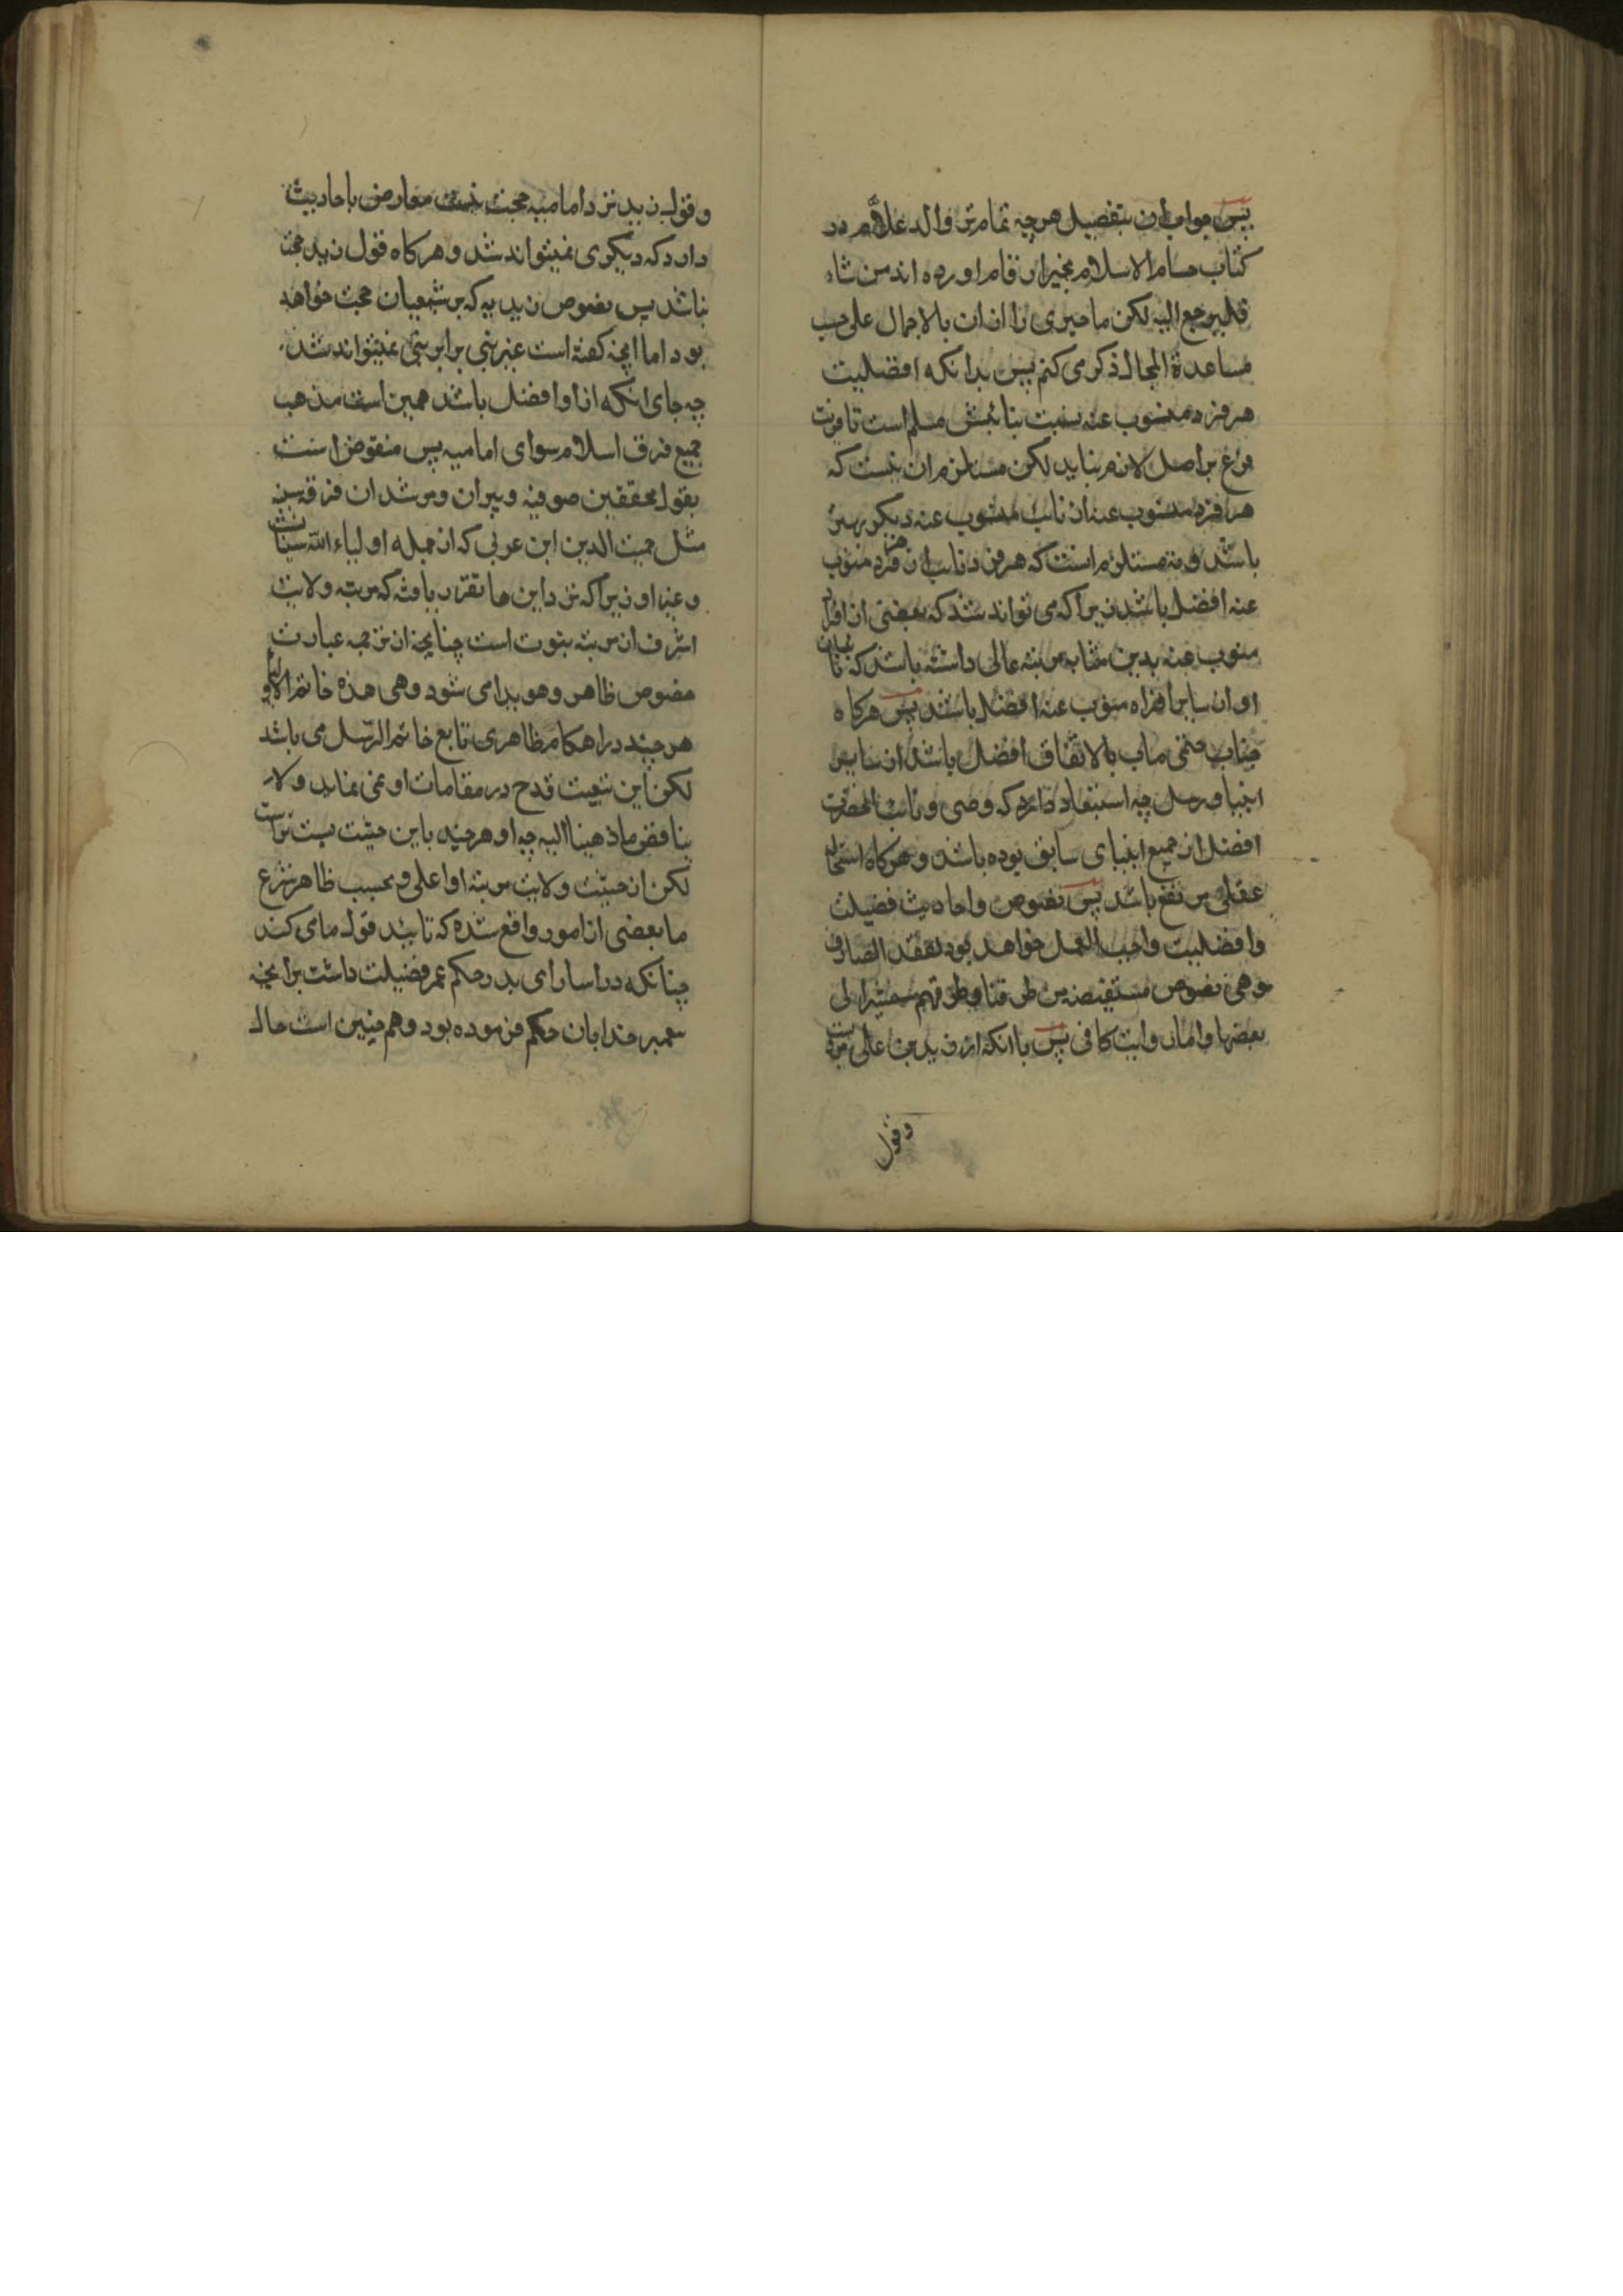 پس جواب ان بتفصیل هر چه تمامتر والد علام در
کتاب حسام الاسلام بحیز ارقام اورده اند من شاء
فلیرجع الیه لکن ما چیزی را ازان بالاجمال علی حسب
مساعدة المجال ذکر می کنم پس بدانکه افضلیت
هر فرد منسوب عنه نسبت بنائبش مسلم است تا مزیت
فرع بر اصل لازم نیاید لکن مستلزم ان نیست که
هر فرد منسوب عنه از نائب منسوب عنه دیگر بهتر
باشد و نه مستلزم است که هر فرد نائب از هر فرد منوب
عنه افضل باشد زیرا که می تواند شد که بعضی از افراد
منوب عنه بدین مثابه مرتبه عالی داشته باشد که نائبان
او از سایر افراد منوب عنه افضل باشند پس هرکاه
جناب ختمی ماب بالاتفاق افضل باشد از سایر
انبیا و رسل چه استبعاد دارد که وصی و نائب انحضرت
افضل از جمیع انبیای سابق بوده باشد و هرکاه استحاله
عقلی مرتفع باشد پس نصوص و احادیث فضیلت
و افضلیت واجب العمل خواهد بود لفقد الصارف
و هی نصوص مستفیضة من طرقنا و طرقهم سنشیر الی
بعضها و اما روایت کافی پس با انکه از زید بن علی مرویست
وقول
وقول زید نزد امامیه حجت نیست معارض باحادیث
دارد که دیکری نمیتواند شد و هرکاه قول زید حجت
نباشد پس نصوص زیدیه که بر شیعیان حجت خواهد
بود اما انچه کفته است غیر نبی برابر نبی نمیتواند شد
چه جای انکه ازاو افضل باشد همین است مذهب
جمیع فرق اسلام سوای امامیه پس منقوض است
بقول محققین صوفیه و پیران و مرشدان فرقه سنیه
مثل محیت الدین ابن عربی که از جمله اولیاء الله سنیان است
و غیر او زیرا که نزد این ها تقرر یافته که مرتبه ولایت
اشرف از مرتبه نبوت است چنانچه از ترجمه عبارت
فصوص ظاهر و هویدا می شود و هی هذه خاتم الاولیا
هر چند در احکام ظاهری تابع خاتم الرسل می باشد
لکن این تبعیت قدح در مقامات او نمی نماید و لا
یناقض ما ذهبنا الیه چه او هر چند باین حیثیت پست تر است
لکن از حیثیت ولایت مرتبه او اعلی و بحسب ظاهر شرع
ما بعضی از امور واقع شده که تایید قول ما می کند
چنانکه در اسارای بدر حکم عمر فضیلت داشت بر انچه
پیمبر خدا بان حکم فرموده بود و هم چنین است حال